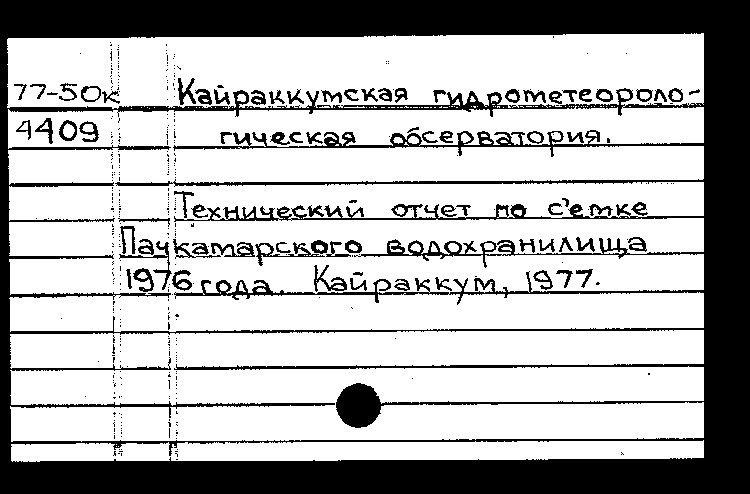 77-50к Кайраккумская гидрометеороло-
4409 гическая обсерватория.
Технический отчет по с'емке
Пачкамарского водохранилища
1976 года. Кайраккум, 1977.